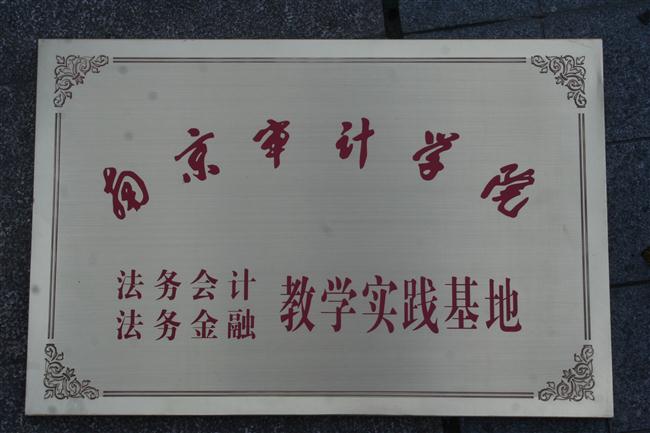 南京审计学院
法务会计
法务金融
教学实践基地